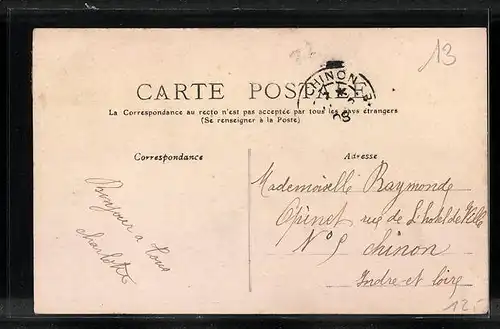 13
CHINON
08
CARTE POSTALE
La Correspondance au recto n'est pas acceptée par tous les pays étrangers
(Se renseigner à la Poste)
Correspondance
Adresse
Bonjour a tous
Charlotte
Mademoiselle Raymonde
Opinet rue de L'hotel de Ville
N° 5 Chinon
Indre et loire
125